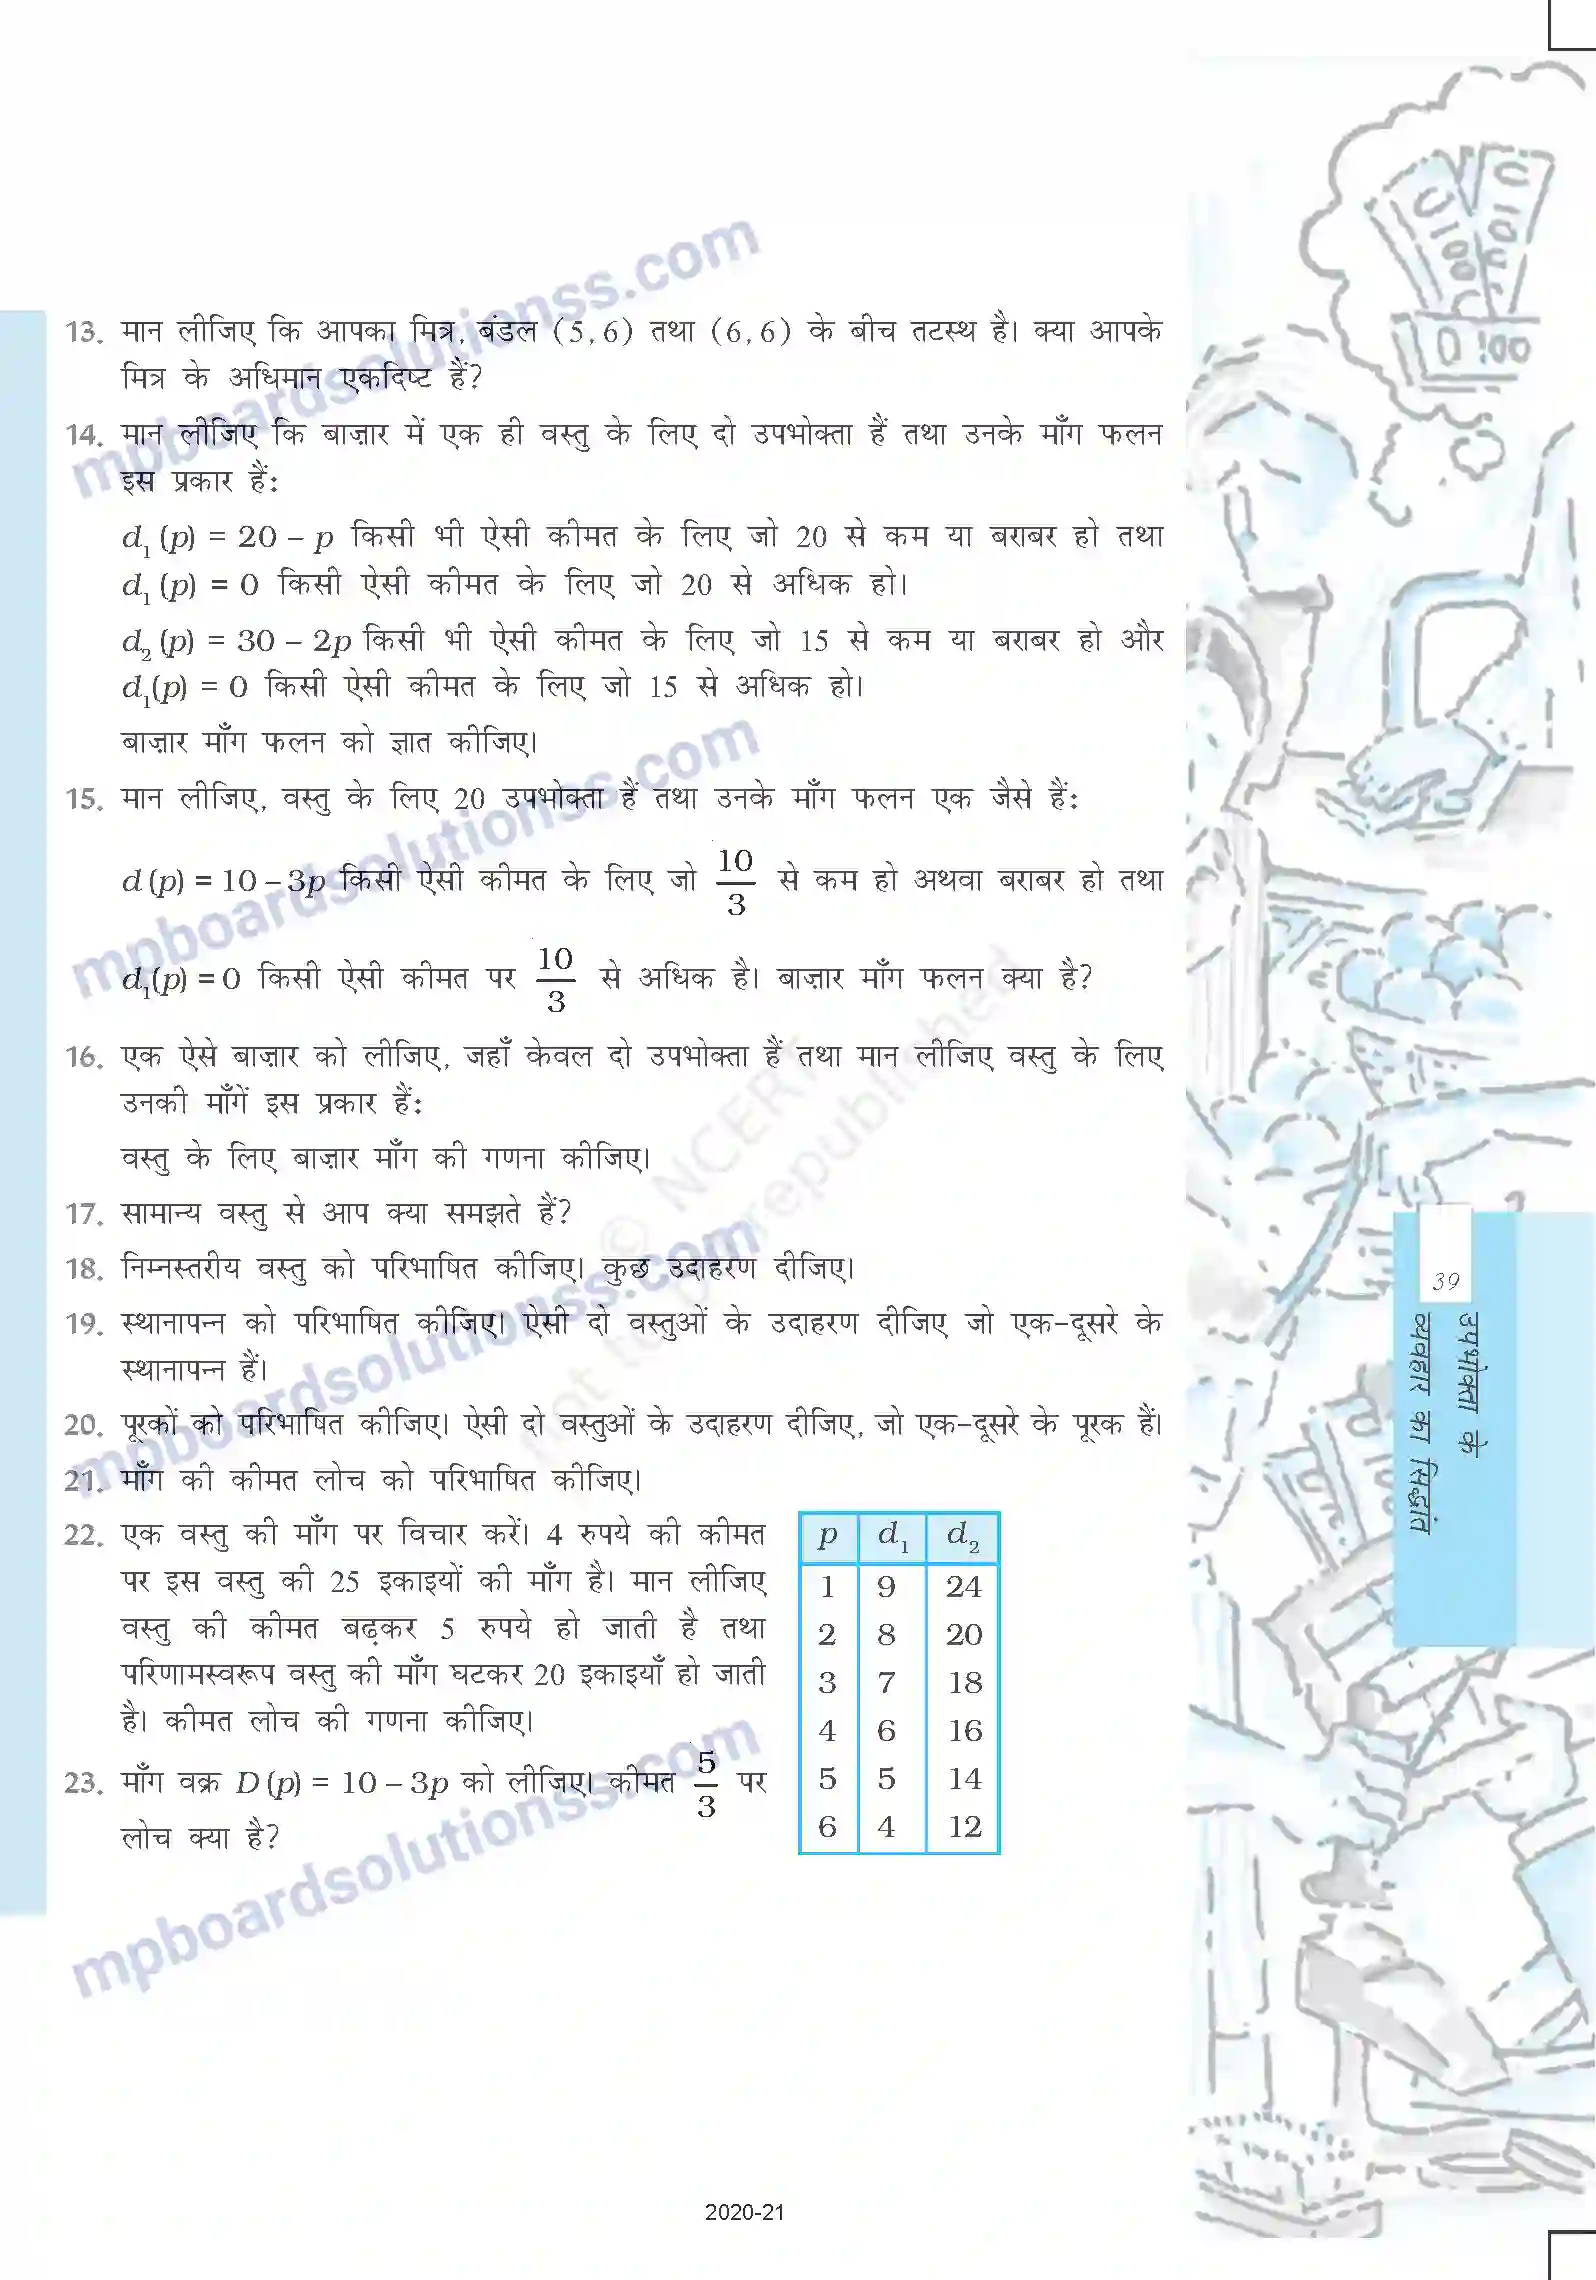 13. मान लीजिए कि आपका मित्र, बंडल (5, 6) तथा (6, 6) के बीच तटस्थ है। क्या आपके
मित्र के अधिमान एकदिष्ट हैं?
14. मान लीजिए कि बाज़ार में एक ही वस्तु के लिए दो उपभोक्ता हैं तथा उनके माँग फलन
इस प्रकार हैं:
d₁ (p) = 20 – p किसी भी ऐसी कीमत के लिए जो 20 से कम या बराबर हो तथा
d₁ (p) = 0 किसी ऐसी कीमत के लिए जो 20 से अधिक हो।
d₂ (p) = 30 – 2p किसी भी ऐसी कीमत के लिए जो 15 से कम या बराबर हो और
d₁(p) = 0 किसी ऐसी कीमत के लिए जो 15 से अधिक हो।
बाज़ार माँग फलन को ज्ञात कीजिए।
15. मान लीजिए, वस्तु के लिए 20 उपभोक्ता हैं तथा उनके माँग फलन एक जैसे हैं:
d (p) = 10 – 3p किसी ऐसी कीमत के लिए जो 10/3 से कम हो अथवा बराबर हो तथा
d₁(p) = 0 किसी ऐसी कीमत पर 10/3 से अधिक है। बाज़ार माँग फलन क्या है?
16. एक ऐसे बाज़ार को लीजिए, जहाँ केवल दो उपभोक्ता हैं तथा मान लीजिए वस्तु के लिए
उनकी माँगें इस प्रकार हैं:
वस्तु के लिए बाज़ार माँग की गणना कीजिए।
17. सामान्य वस्तु से आप क्या समझते हैं?
18. निम्नस्तरीय वस्तु को परिभाषित कीजिए। कुछ उदाहरण दीजिए।
19. स्थानापन्न को परिभाषित कीजिए। ऐसी दो वस्तुओं के उदाहरण दीजिए जो एक-दूसरे के
स्थानापन्न हैं।
20. पूरकों को परिभाषित कीजिए। ऐसी दो वस्तुओं के उदाहरण दीजिए, जो एक-दूसरे के पूरक हैं।
21. माँग की कीमत लोच को परिभाषित कीजिए।
22. एक वस्तु की माँग पर विचार करें। 4 रुपये की कीमत
पर इस वस्तु की 25 इकाइयों की माँग है। मान लीजिए
वस्तु की कीमत बढ़कर 5 रुपये हो जाती है तथा
परिणामस्वरूप वस्तु की माँग घटकर 20 इकाइयाँ हो जाती
है। कीमत लोच की गणना कीजिए।
23. माँग वक्र D (p) = 10 – 3p को लीजिए। कीमत 5/3 पर
लोच क्या है?
p d₁ d₂
1 9 24
2 8 20
3 7 18
4 6 16
5 5 14
6 4 12
39
उपभोक्ता के
व्यवहार का सिद्धांत
2020-21
© NCERT
not to be republished
mpboardsolutionss.com
mpboardsolutionss.com
mpboardsolutionss.com
mpboardsolutionss.com
0 100